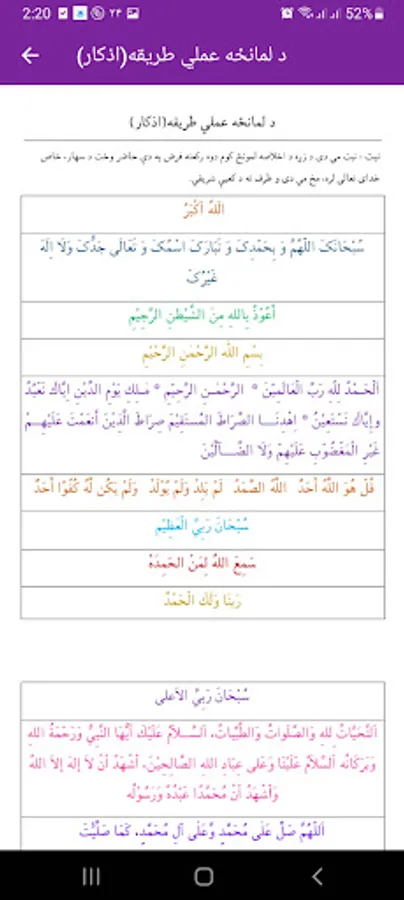 2:20 ۲۴ 52%
د لمانځه عملي طریقه(اذکار)
د لمانځه عملي طریقه(اذکار)
نیت : نیت مي دی د زړه د اخلاصه لمونځ کوم دوه رکعته فرض په دې حاضر وخت د سهار، خاص
خدای تعالی لره، مخ مي دی و طرف ته د کعبې شریفې.
اَللهُ اَکْبَرُ
سُبْحَانَکَ اللّٰهُمَّ وَ بِحَمْدِکَ وَ تَبَارَکَ اسْمُکَ وَ تَعَالَی جَدُّکَ وَلَا اِلٰهَ
غَیْرُکَ
أَعُوْذُ بِاللهِ مِنَ الشَّیْطٰنِ الرَّجِیْمِ
بِسْمِ اللهِ الرَّحْمٰنِ الرَّحْیْمِ
اَلْحَمْدُ لِلّٰهِ رَبِّ الْعَالَمِیْنَ * الرَّحْمٰنِ الرَّحِیْمِ * مَالِكِ یَوْمِ الدِّیْنِ إِیَّاكَ نَعْبُدُ
وإِیَّاكَ نَسْتَعِیْنُ * اِهْدِنَا الصِّرَاطَ المُسْتَقِیْمَ صِرَاطَ الَّذِیْنَ أَنعَمْتَ عَلَیْهِمْ
غَیْرِ الْمَغْضُوبِ عَلَیْهِمْ وَلَا الضَّآلِّیْنَ
قُلْ هُوَ اللّٰهُ أَحَدٌ اللّٰهُ الصَّمَدُ لَمْ یَلِدْ وَلَمْ یُوْلَدْ وَلَمْ یَکُن لَّهُ کُفُوًا أَحَدٌ
سُبْحَانَ رَبِّيَ الْعَظِیْمِ
سَمِعَ اللهُ لِمَنْ الحَمِدَهُ
رَبَنَا وَلَكَ الْحَمْدُ
سُبْحَانَ رَبِّيَ الاَعلی
اَلتَّحِیَّاتُ لِلهِ وَالصَّلَواتُ وَالطَّیِّبَاتُ، اَلسَّلاَمُ عَلَیْكَ أَیُّهَا النَّبِيُّ وَرَحْمَةُ اللهِ
وَبَرَکَاتُه اَلسَّلاَمُ عَلَیْنَا وَعَلی عِبَادِ اللهِ الصَّالِحِیْنَ، أَشْهَدُ أَنْ لاَ إِلهَ إِلاَّ اللهُ
وَأَشْهَدُ أَنْ مُحَمَّدًا عَبْدُهُ وَرَسُوْلُه
اَللّٰهُمَّ صَلِّ عَلَی مُحَمَّدٍ وَّعَلَی آلِ مُحَمَّدٍ، کَمَا صَلَّیْتَ